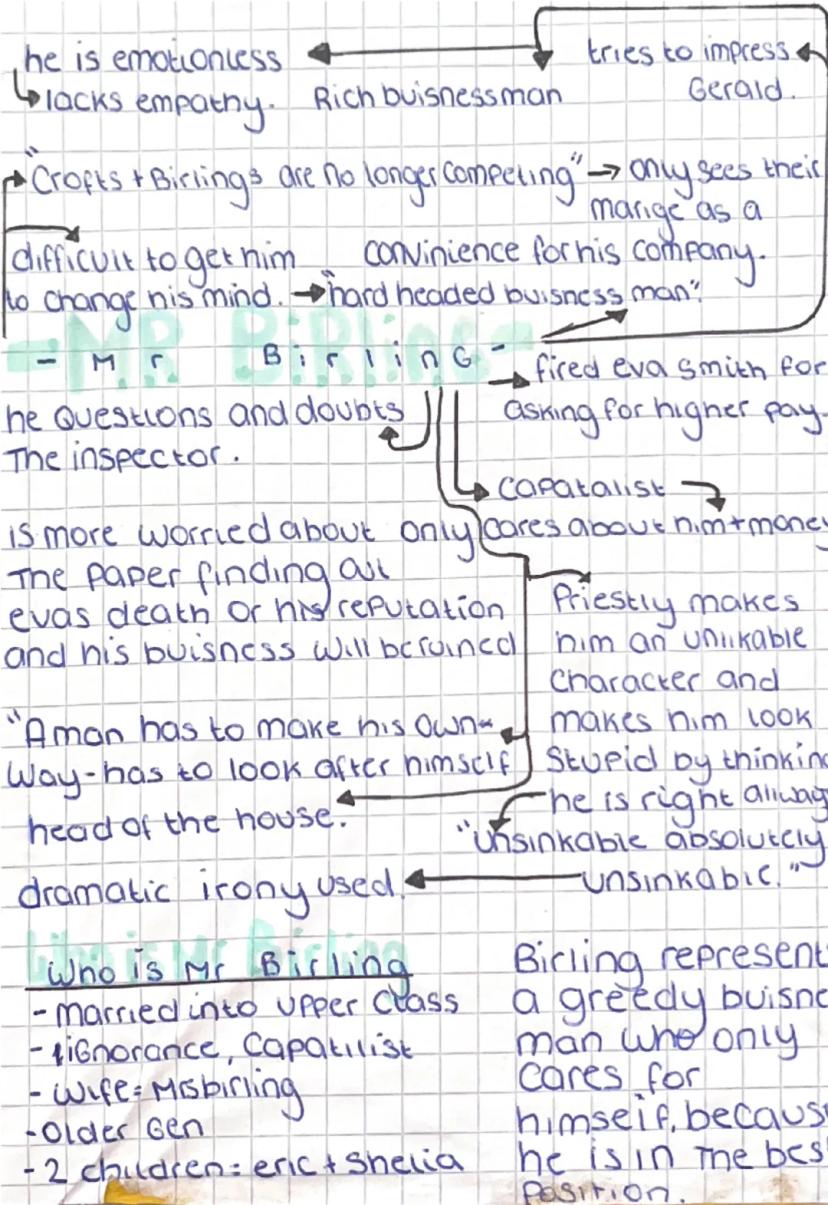 he is emotionless
lacks empathy.
Rich buisnessman
tries to impress
Gerald.
"Crofts + Birlings are no longer competing" → only sees their
marige as a
convinience for his company.
difficult to get him
to change his mind. → "hard headed buisness man".
- Mr Birling -
fired eva smith for
asking for higher pay.
he questions and doubts
The inspector.
capatalist
only cares about him + money
is more worried about
The paper finding out
evas death or his reputation
and his buisness will be ruined
Priestly makes
him an unlikable
character and
makes him look
stupid by thinkin
he is right allway
"unsinkable absolutely
unsinkable."
dramatic irony used.
"A man has to make his own
way - has to look after himself
head of the house.
Who is Mr Birling
- married into upper class
- ignorance, capatilist
- wife = Mrs birling
- Older Gen
- 2 children = eric + Shelia
Birling represent
a greedy buisne
man who only
cares for
himself, becaus
he is in the bes
position.